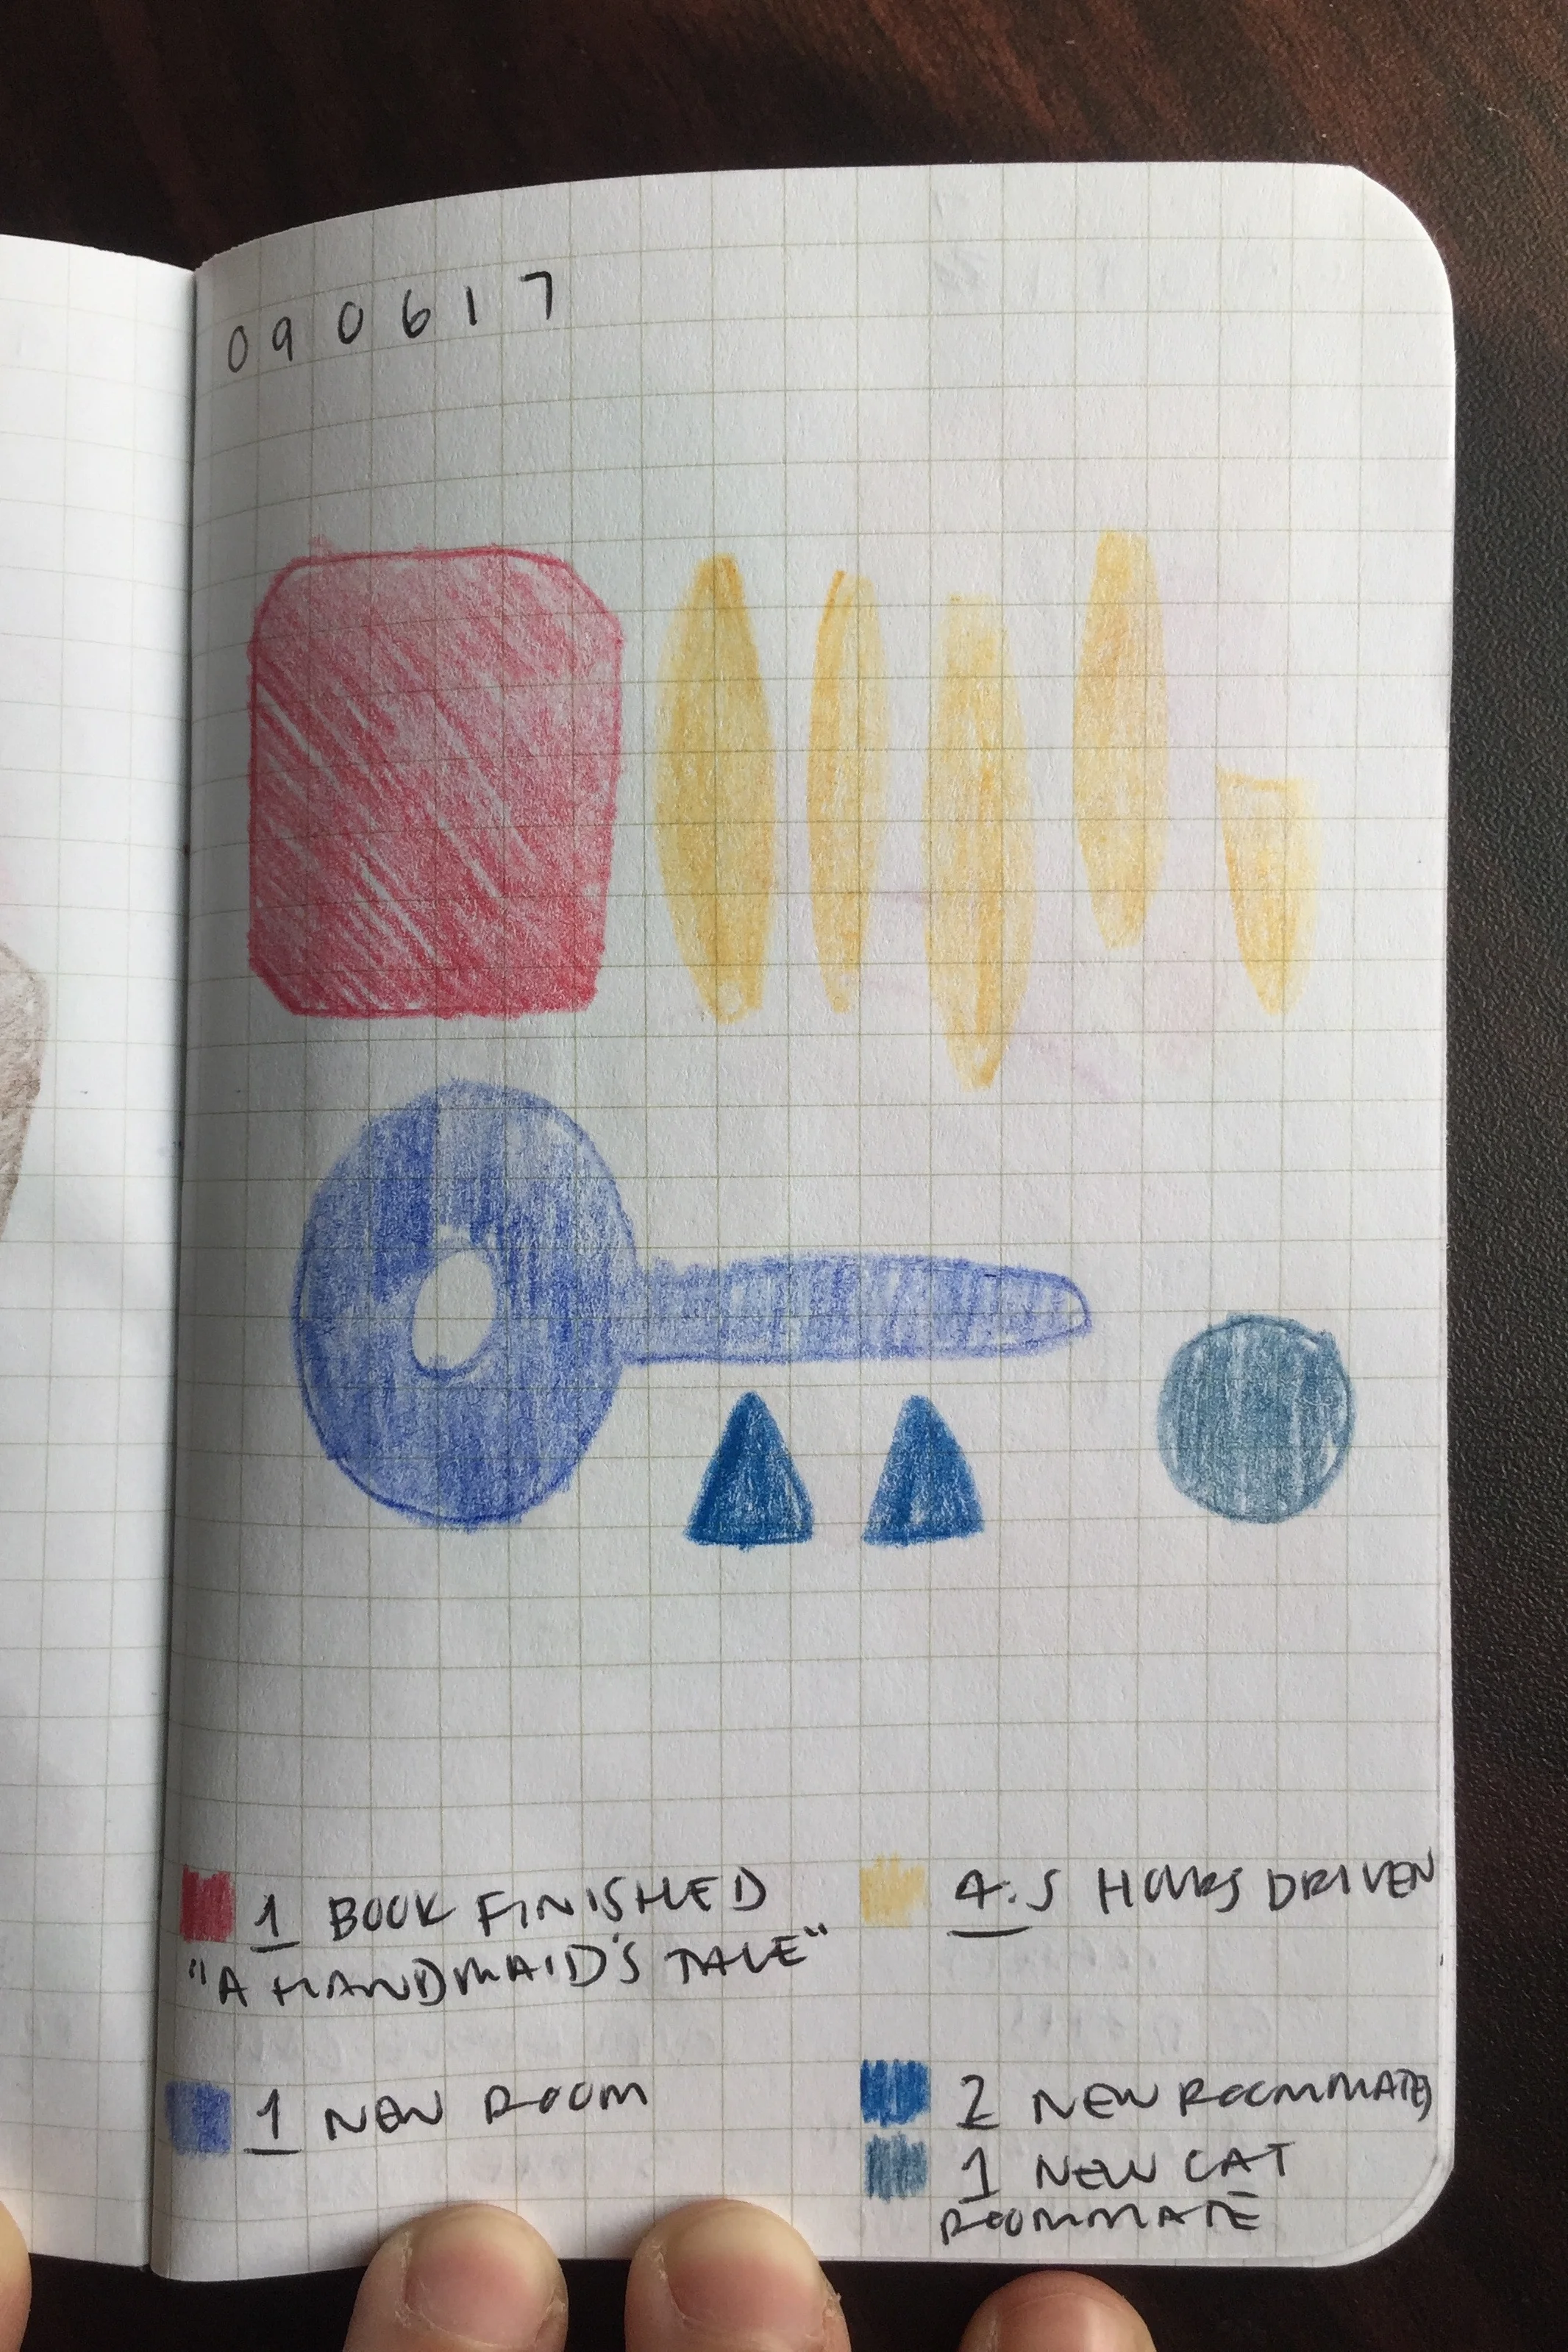 090617
1 BOOK FINISHED
"A HANDMAID'S TALE"
4.5 HOURS DRIVEN
1 NEW ROOM
2 NEW ROOMMATES
1 NEW CAT
ROOMMATE